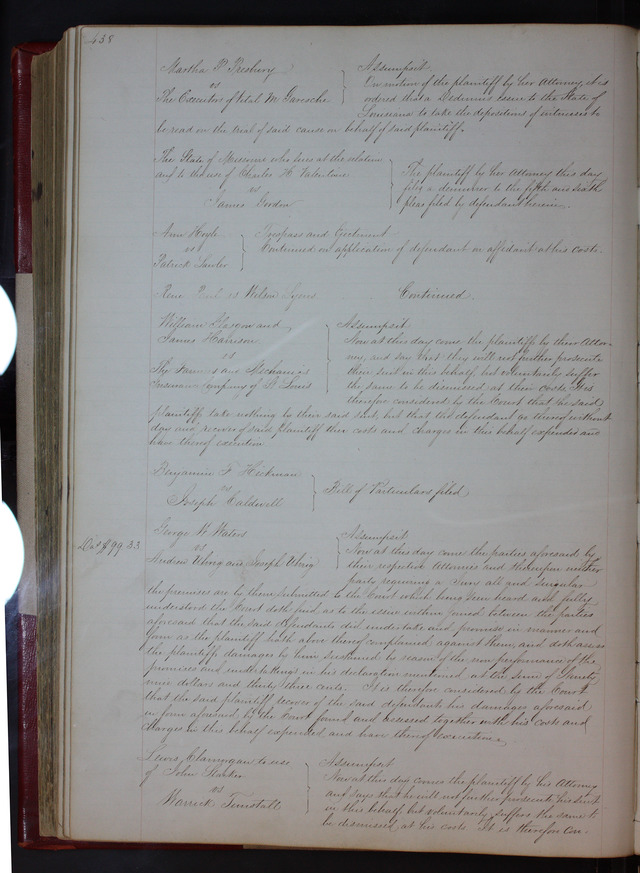 438
Martha P. Presbury } Assumpsit
vs On motion of the plaintiff by her Attorney it is
The Executors of Vital M. Garesche ordered that a Dedimus issue to the State of
Louisiana to take the depositions of witnesses to
be read on the trial of said cause on behalf of said plaintiff.
The State of Missouri who sues at the relation
and to the use of Charles H. Valentine } The plaintiff by her Attorney this day
vs files a demurrer to the fifth and sixth
James Gordon pleas filed by defendant herein.
Ann Hoyle } Trespass and Ejectment
vs Continued on application of defendant on affidavit at his costs.
Patrick
Rene Paul vs Wilson Lyons Continued.
William Glasgow and } Assumpsit
James Harrison Now at this day come the plaintiffs by their Attor-
vs ney, and say that they will not further prosecute
The Farmers and Mechanics their suit in this behalf, but voluntarily suffer
Insurance Company of St Louis the same to be dismissed at their costs. It is
therefore considered by the Court that the said
plaintiffs take nothing by their said suit, but that the defendant go thereof without
day and recover of said plaintiffs their costs and charges in this behalf expended and
have thereof execution
Benjamin F. Hickman
vs } Bill of Particulars filed
Joseph Caldwell
George W. Waters } Assumpsit
$99.33 vs Now at this day come the parties aforesaid by
Andrew Uhrig and Joseph Uhrig their respective Attornies and thereupon neither
party requiring a Jury all and singular
the premises are by them submitted to the Court which being seen heard and fully
understood the Court doth find as to the issue within joined between the parties
aforesaid that the said defendants did undertake and promise in manner and
form as the plaintiff hath above thereof complained against them, and doth assess
the plaintiffs damages by him sustained by reason of the non performance of the
promises and undertakings in his declaration mentioned at the sum of Ninety
nine dollars and thirty three cents. It is therefore considered by the Court
that the said plaintiff recover of the said defendants his damages aforesaid
in form aforesaid by the Court found and assessed together with his costs and
charges in this behalf expended and have thereof execution.
Lewis to use } Assumpsit
of John Now at this day comes the plaintiff by his Attorney
vs and says that he will not further prosecute his suit
Warrick Tunstall in this behalf, but voluntarily suffers the same to
be dismissed at his costs It is therefore con-